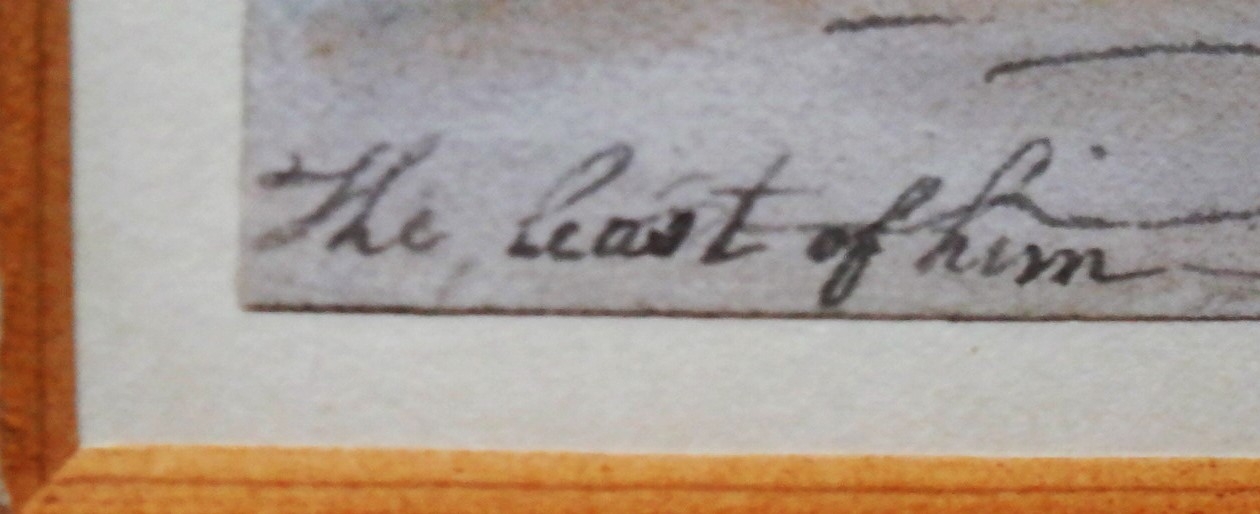 The least of him